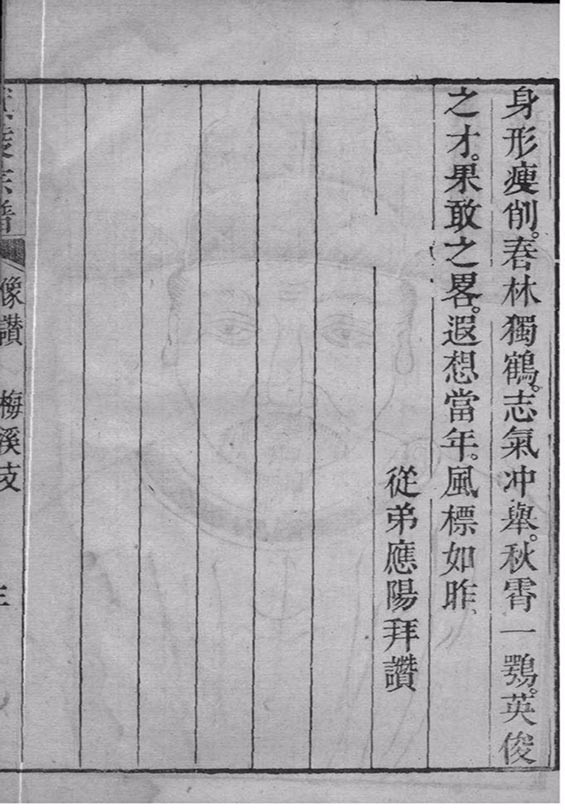 身形瘦削。春林獨鶴。志氣冲舉。秋霄一鶚。英俊
之才。果敢之畧。遐想當年。風標如昨
從弟應陽拜讚
宗譜
像讃
梅溪支